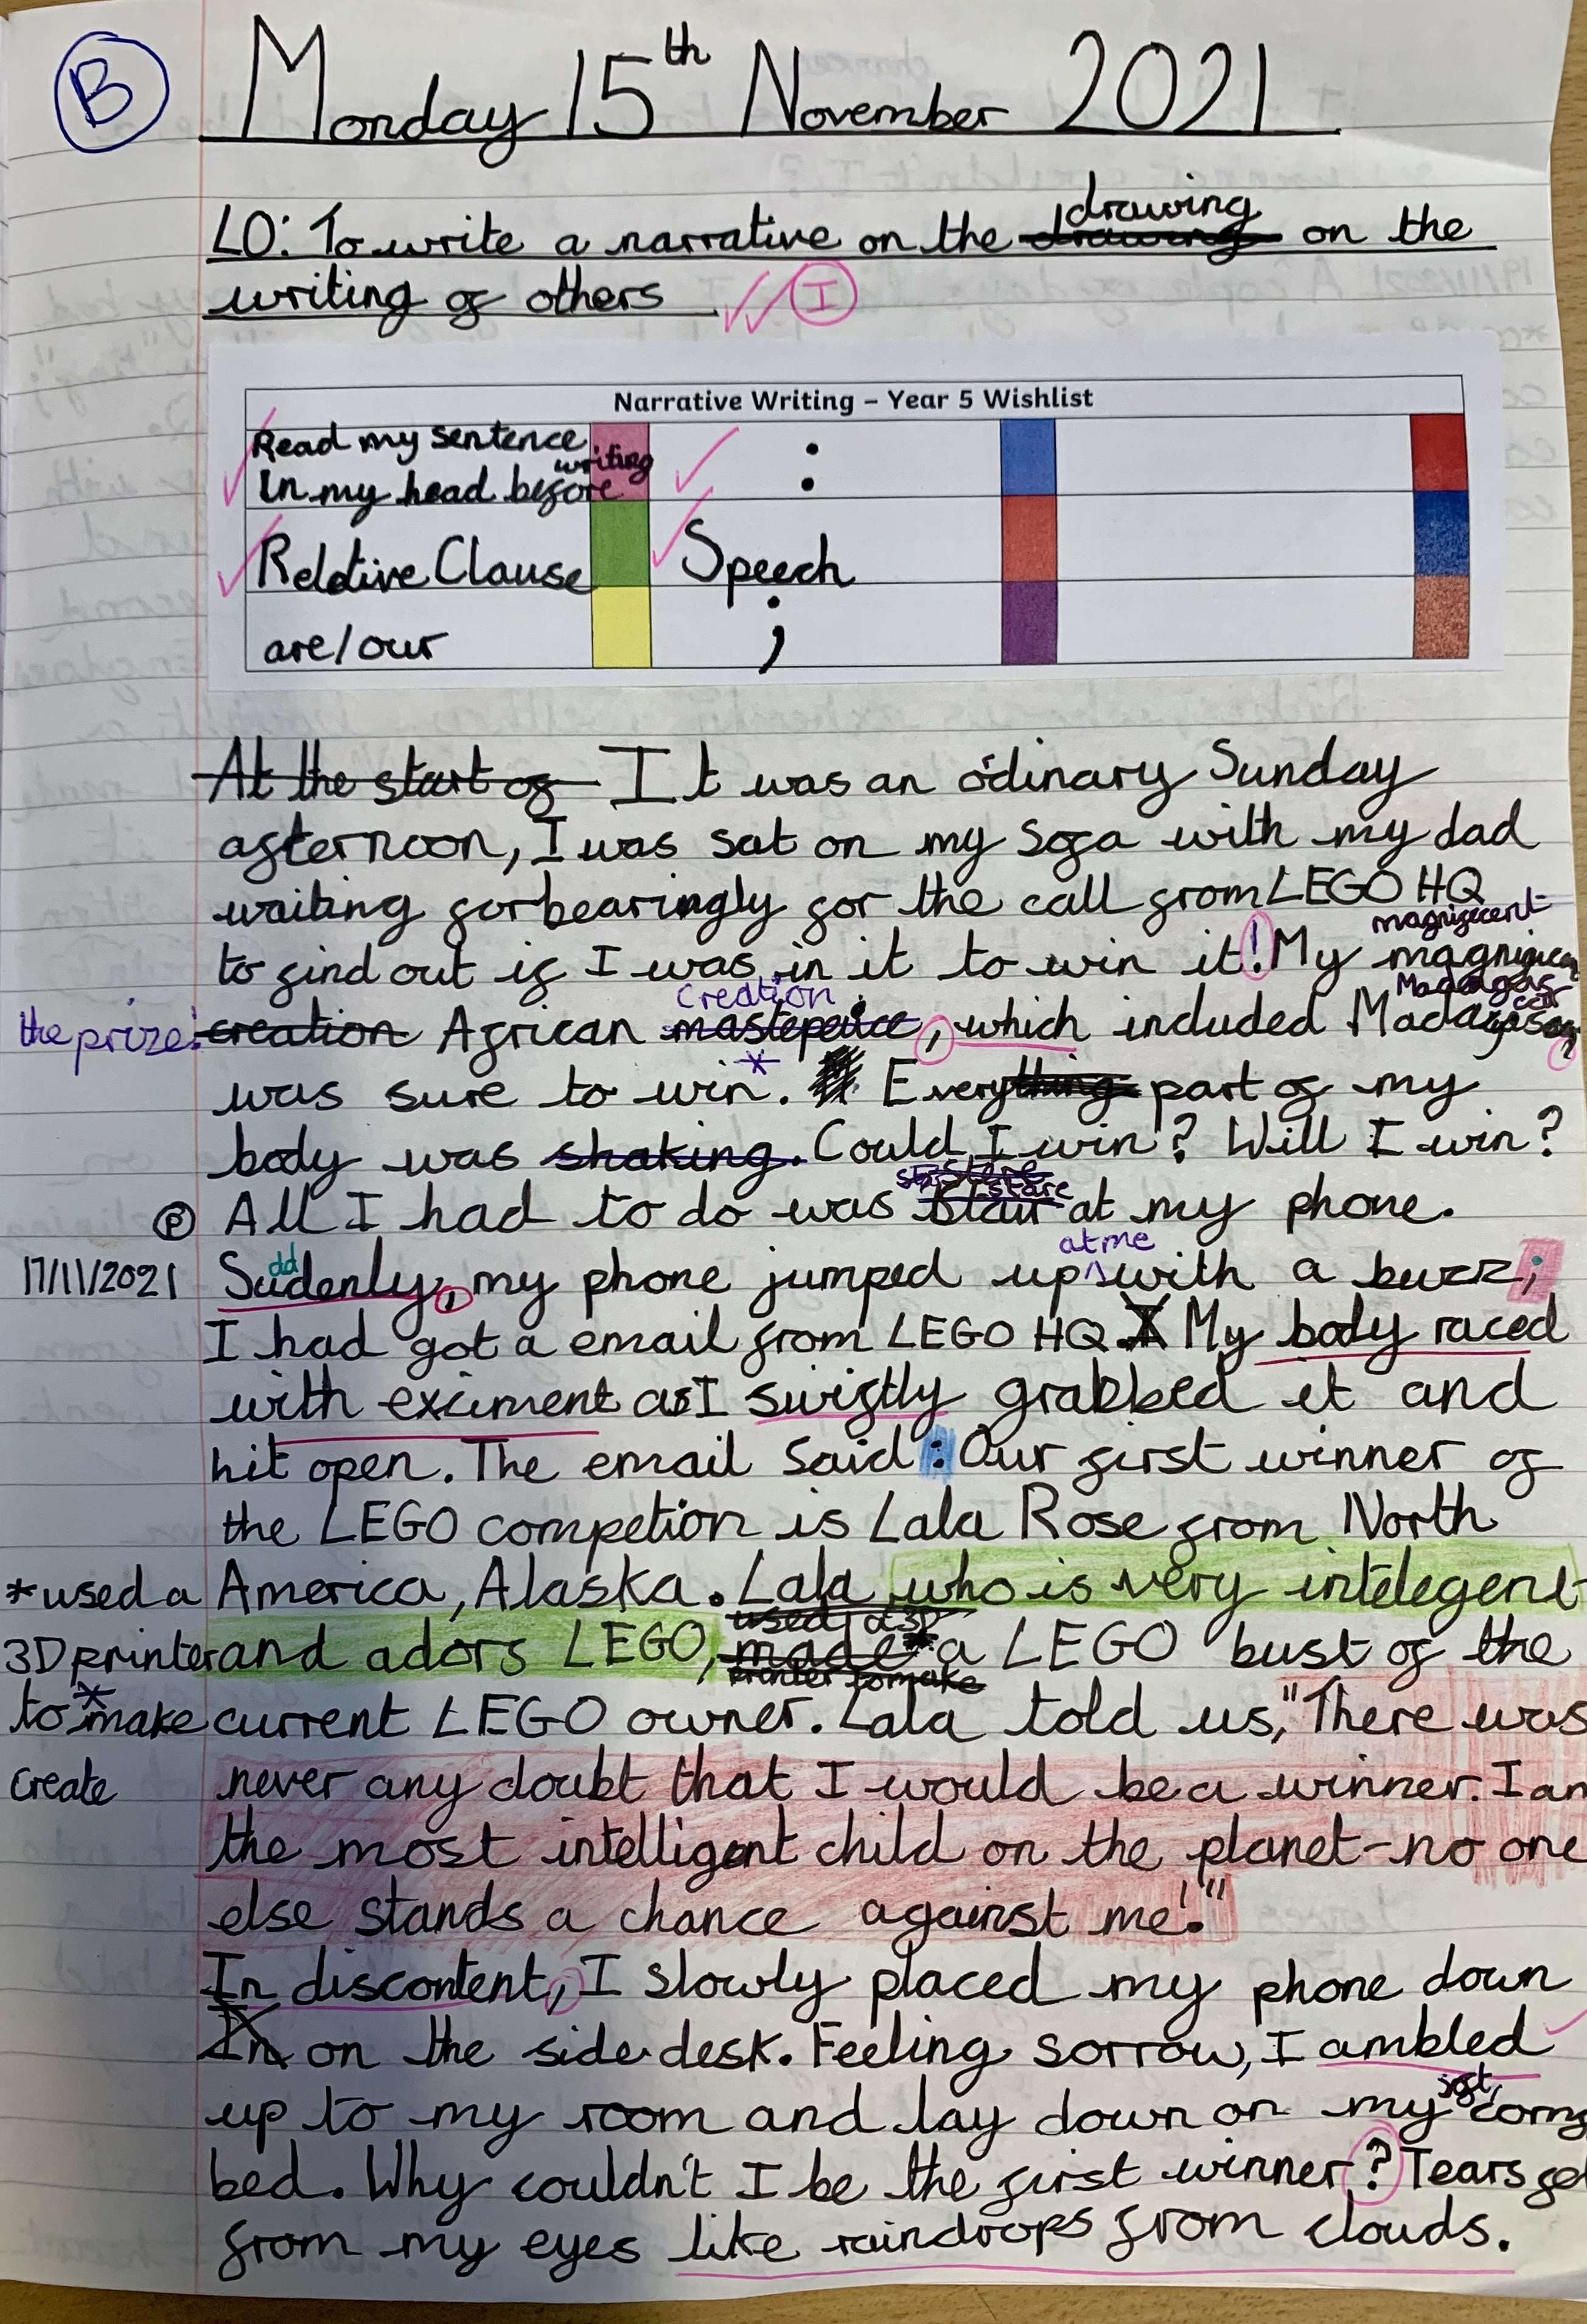 B
Monday 15th November 2021
drawing
LO: To write a narrative on the drawing on the
writing of others
I
Narrative Writing – Year 5 Wishlist
Read my sentence
In my head before writing
:
Relative Clause
Speech
are/our
;
At the start of It was an odinary Sunday
afternoon, I was sat on my sofa with my dad
waiting forbearingly for the call from LEGO HQ
magnificent
to find out if I was in it to win it! My
creation
Madagascar
the prize! creation African masterpeice, which included
*
was sure to win. Everything part of my
body was shaking. Could I win? Will I win?
stare
stare
P All I had to do was at my phone.
at me
dd
17/11/2021 Sudenly, my phone jumped up with a buzz;
I had got a email from LEGO HQ. My body raced
with exciment as I swiftly grabbed it and
hit open. The email said: Our first winner of
the LEGO competion is Lala Rose from North
*used a America, Alaska. Lala who is very intelegent
used a 3D
3D printer and adors LEGO, made a LEGO bust of the
printer to make
to *make current LEGO owner. Lala told us, "There was
create never any doubt that I would be a winner. I am
the most intelligent child on the planet-no one
else stands a chance against me!"
In discontent, I slowly placed my phone down
In on the side desk. Feeling sorrow, I ambled
soft,
up to my room and lay down on my
bed. Why couldn't I be the first winner? Tears
from my eyes like raindrops from clouds.